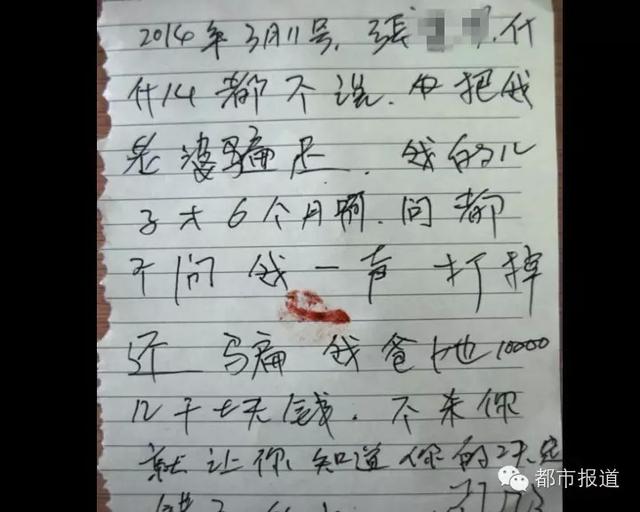 2014年3月11号,张 什
什么都不说.中把我
老婆骗走.我的儿
子才6个月啊.问都
不问我一声打掉
还骗我爸他10000
几千七天钱.不来你
就让你知道你的
错了
都市报道